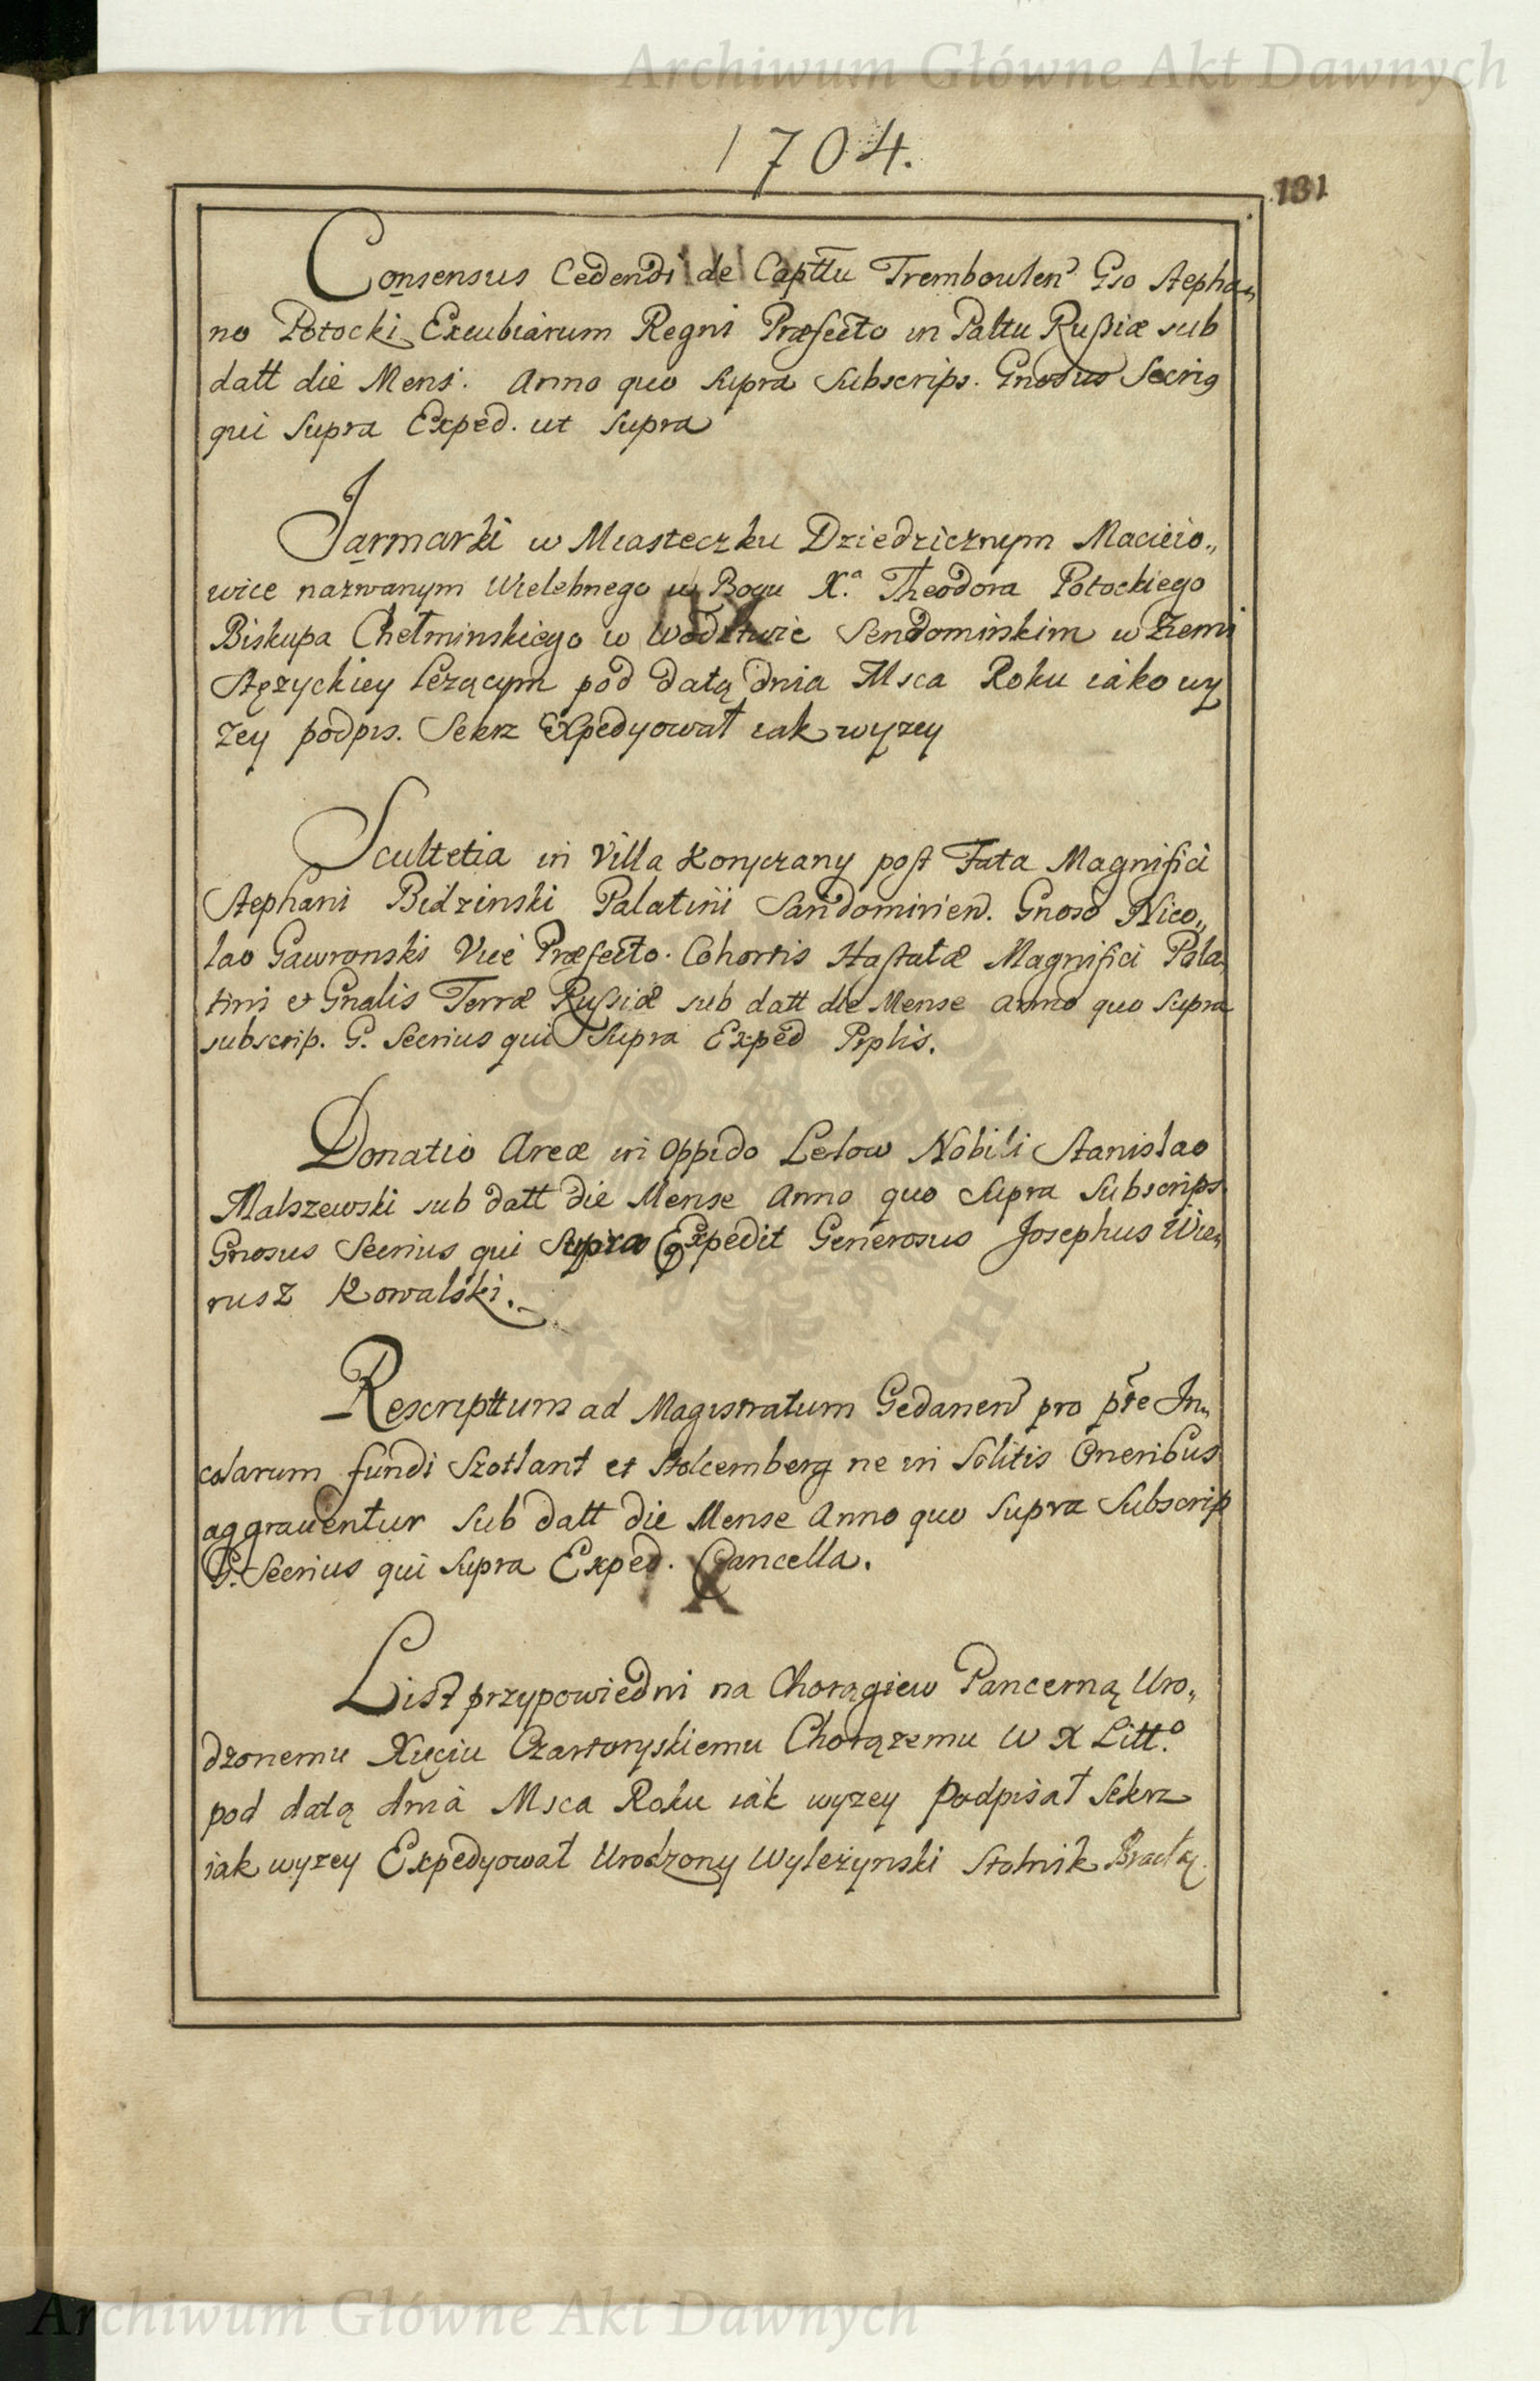 Archiwum Główne Akt Dawnych
1704.
131
Consensus Cedendi de Capttu Tremboulen Gso Stepha„
no Potocki Excubiarum Regni Præfecto in Paltu Rußiæ sub
datt die Mens. Anno quo supra Subscrips. Gnosus Secrig
qui supra Exped. ut supra
Jarmarki w Miasteczku Dziedzicznym Macieio„
wice nazwanym Wielebnego w Bogu X.ª Theodora Potockiego
Biskupa Chełminskiego w Wodztwie Sendomińskim w Ziemi
Stęzyckiey lezącym pod datą dnia Msca Roku iako wy
zey podpis. Sekrz Expedyował iak wyzey
Scultetia in Villa Konyczany post Fata Magnifici
Stephani Bidzinski Palatini Sandomirien. Gnoso Nico„
lao Gawronski Vice Præfecto. Cohortis Hastatæ Magnifici Pala„
tini et Gnalis Terræ Rußiæ sub datt die Mense anno quo supra
subscrip. G. Secrius qui Supra Exped Pplis.
Donatio Areæ in Oppido Lelow Nobili Stanislao
Malszewski sub datt die Mense Anno quo supra Subscrips.
Gnosus Secrius qui supra Expedit Generosus Josephus Wie„
rusz Kowalski.
Rescripttum ad Magistratum Gedanen pro pte In„
colarum fundi Szotlant et Stolcemberg ne in Solitis Oneribus
aggrauentur Sub datt die Mense Anno quo supra Subscrip
G. Secrius qui supra Exped. Cancella.
List przypowiedni na Chorągiew Pancerną Uro„
dzonemu Xięciu Czartoryskiemu Chorązemu W X Litt.º
pod datą dnia Msca Roku iak wyzey Podpisał Sekrz
iak wyzey Expedyował Urodzony Wyleżynski Stolnik Bracły.
Archiwum Główne Akt Dawnych